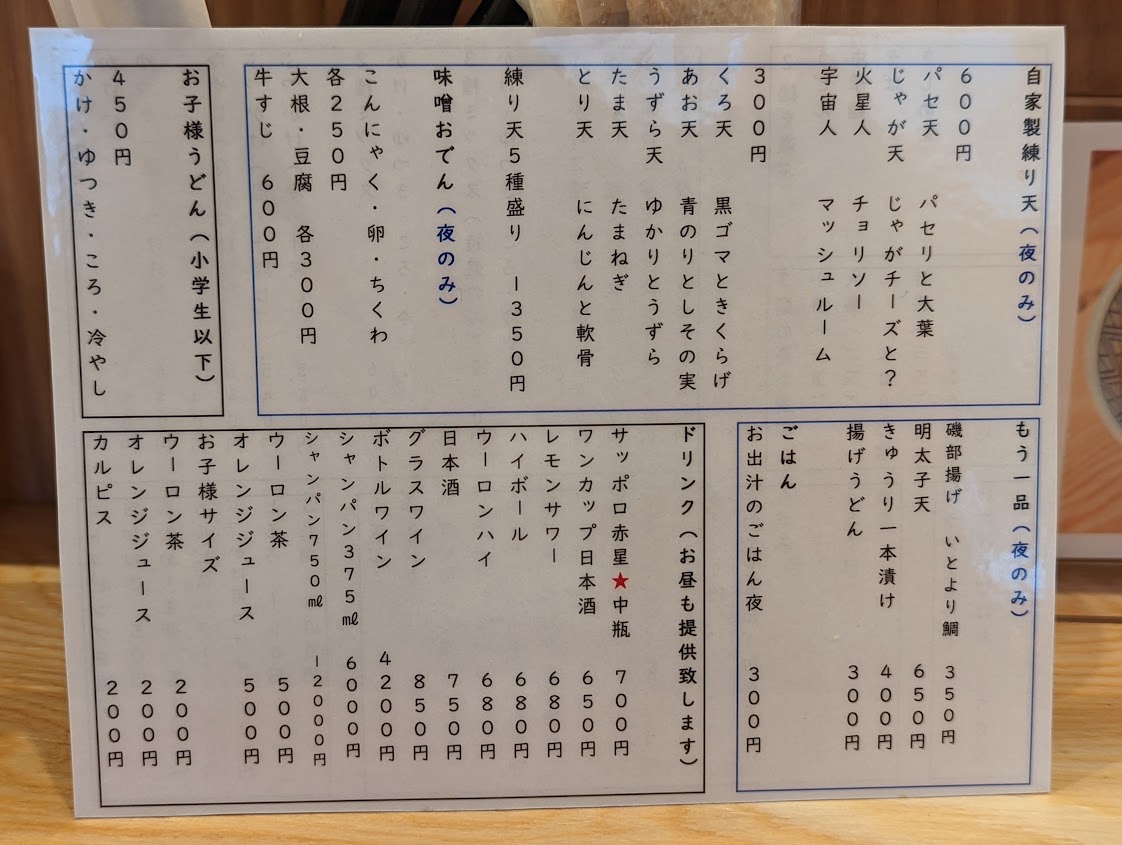 自家製練り天（夜のみ）
６００円
パセ天　パセリと大葉
じゃが天　じゃがチーズと？
火星人　チョリソー
宇宙人　マッシュルーム
３００円
くろ天　黒ゴマときくらげ
あお天　青のりとしその実
うずら天　ゆかりとうずら
たま天　たまねぎ
とり天　にんじんと軟骨
練り天５種盛り　１３５０円
味噌おでん（夜のみ）
こんにゃく・卵・ちくわ
各２５０円
大根・豆腐　各３００円
牛すじ　６００円
お子様うどん（小学生以下）
４５０円
かけ・ゆつき・ころ・冷やし
もう一品（夜のみ）
磯部揚げ　いとより鯛　３５０円
明太子天　６５０円
きゅうり一本漬け　４００円
揚げうどん　３００円
ごはん
お出汁のごはん夜　３００円
ドリンク（お昼も提供致します）
サッポロ赤星★中瓶　７００円
ワンカップ日本酒　６５０円
レモンサワー　６８０円
ハイボール　６８０円
ウーロンハイ　６８０円
日本酒　７５０円
グラスワイン　８５０円
ボトルワイン　４２００円
シャンパン３７５㎖　６０００円
シャンパン７５０㎖　１２０００円
ウーロン茶　５００円
オレンジジュース　５００円
お子様サイズ
ウーロン茶　２００円
オレンジジュース　２００円
カルピス　２００円